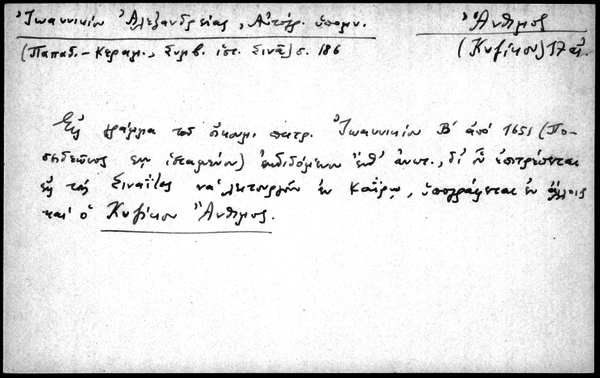 Ἰωαννικίου Ἀλεξανδρείας, Αὐτόγρ. ὑπομν.
Ἄνθιμος
(Παπαδ.-Κεραμ., Συμβ. ἱστ. Σινᾶ) σ. 186
(Κυζίκου) 17 αἰ.
Εἰς γράμμα τοῦ οἰκουμ. πατρ. Ἰωαννικίου Β΄ ἀπό 1651 (Πο-
ἐκδιδόμενον ἐνθ᾽ ἀνωτ., δι᾽ οὗ ἐπιτρέπεται
εἰς τούς Σιναΐτας νά λειτουργοῦν ἐν Καΐρῳ, ὑπογράφεται ἐν ἄλλοις
καί ὁ Κυζίκου Ἄνθιμος.